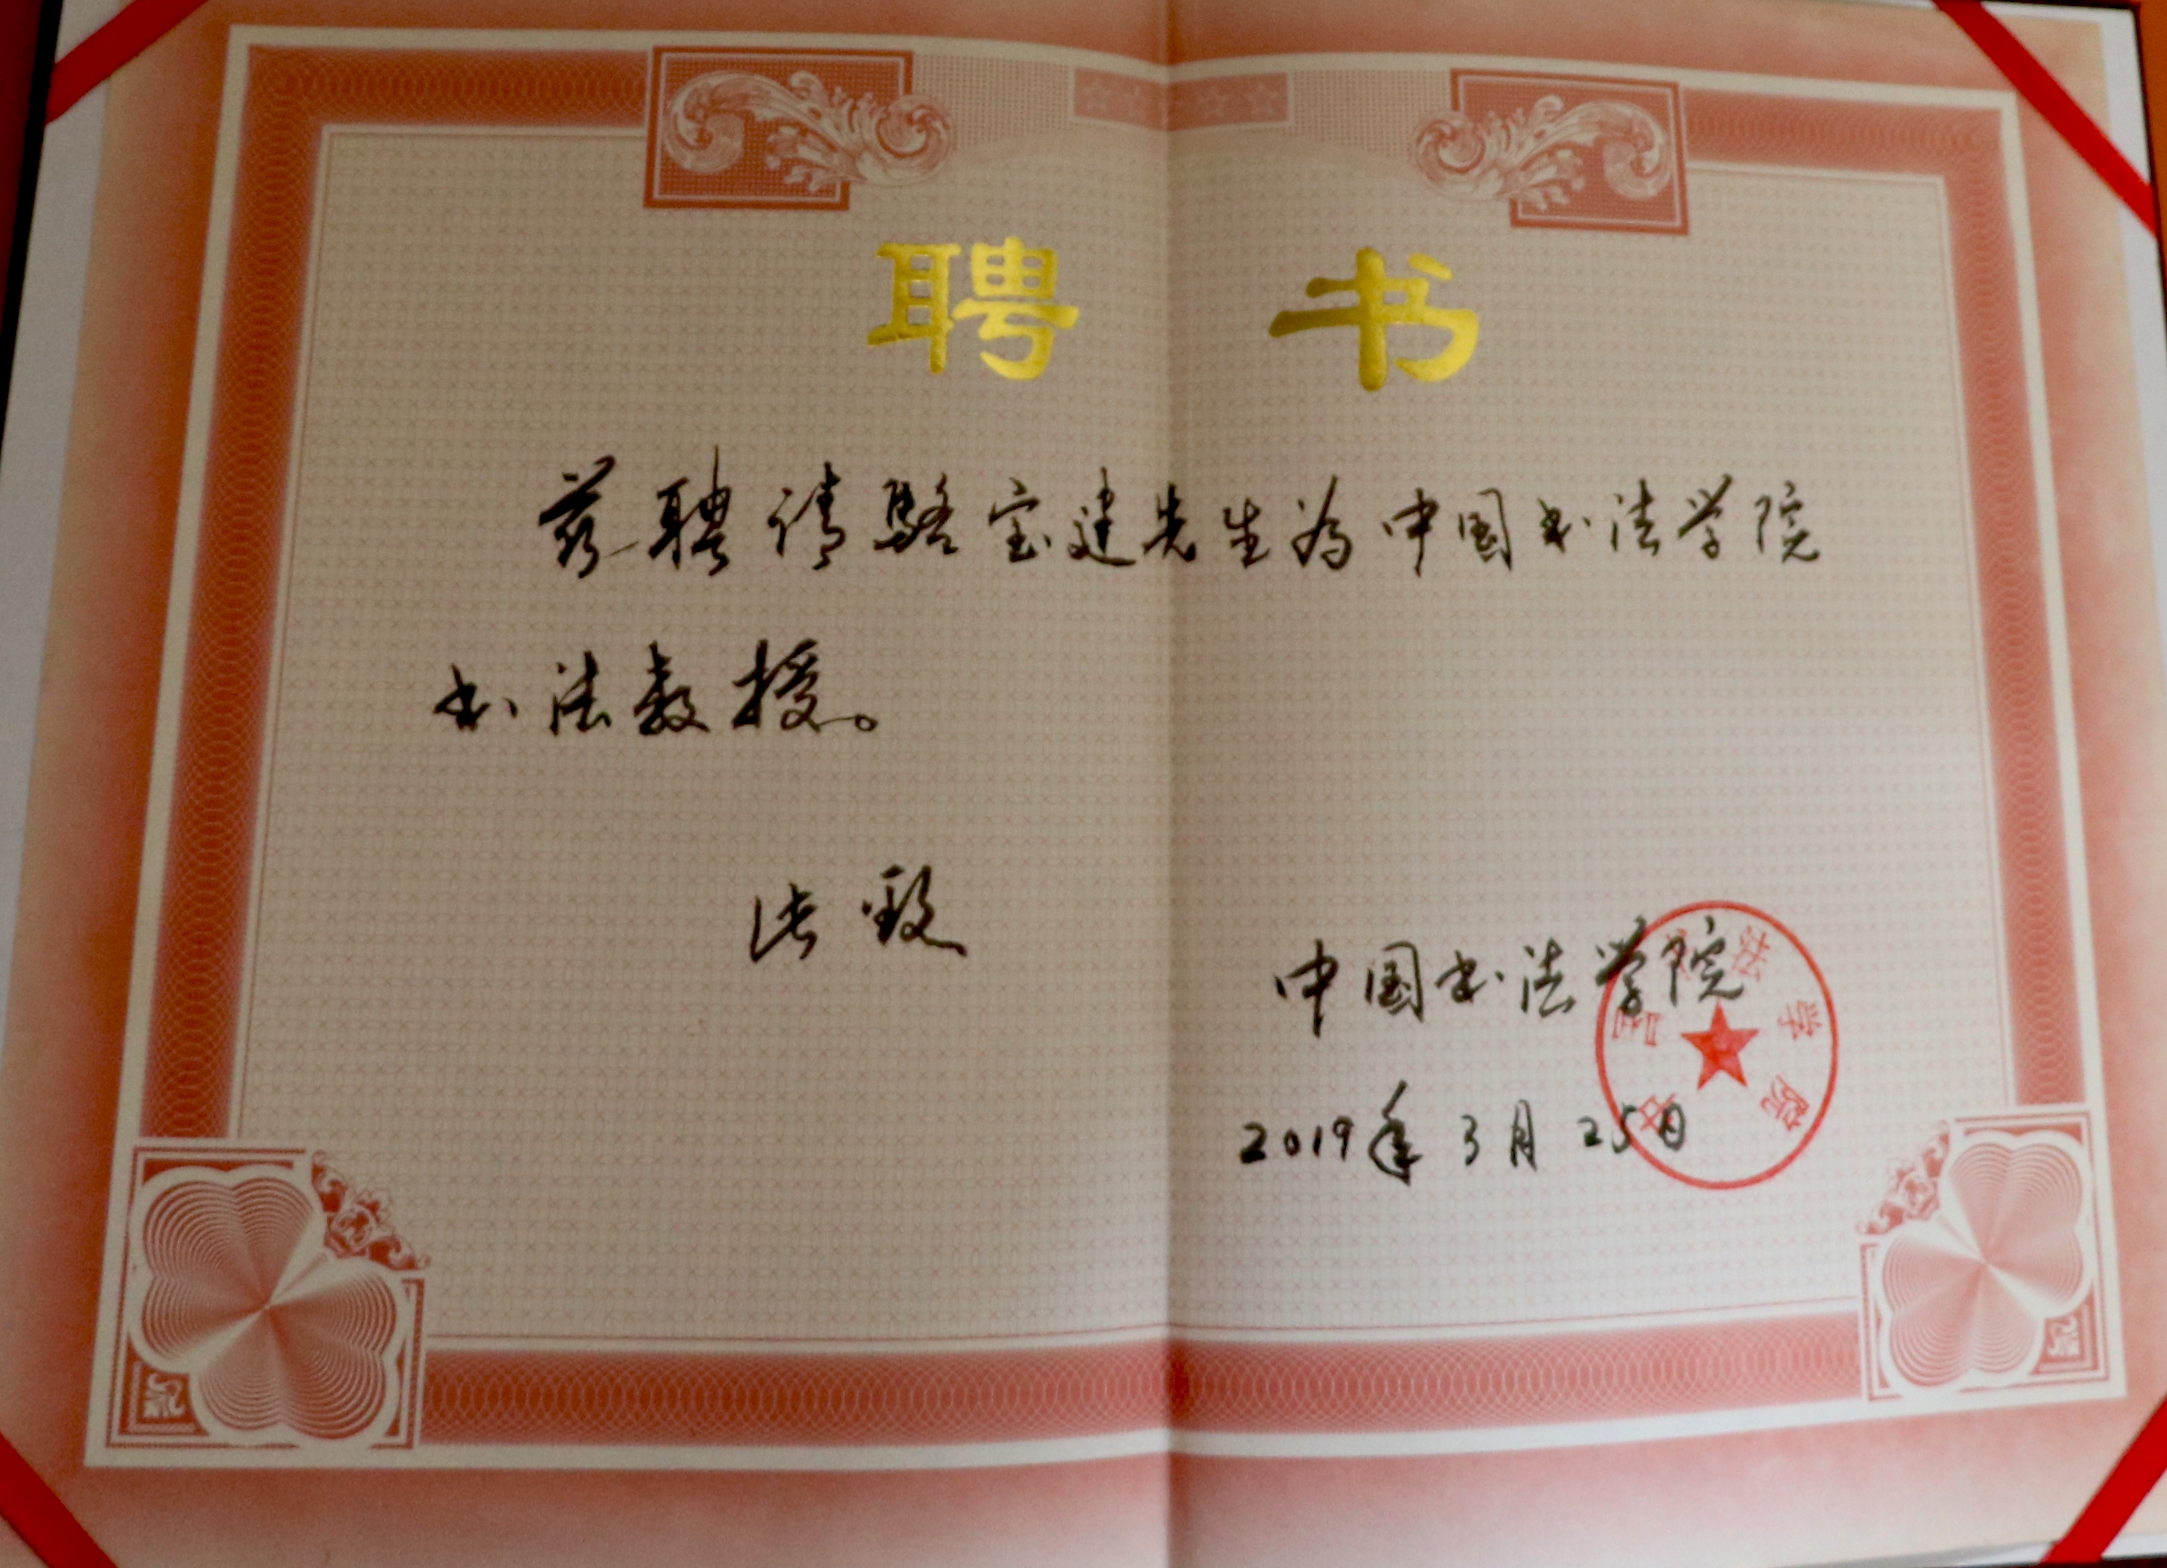 聘 书
兹聘请骆宝建先生为中国书法学院
书法教授。
此致
中国书法学院
2019年3月25日
中国书法学院